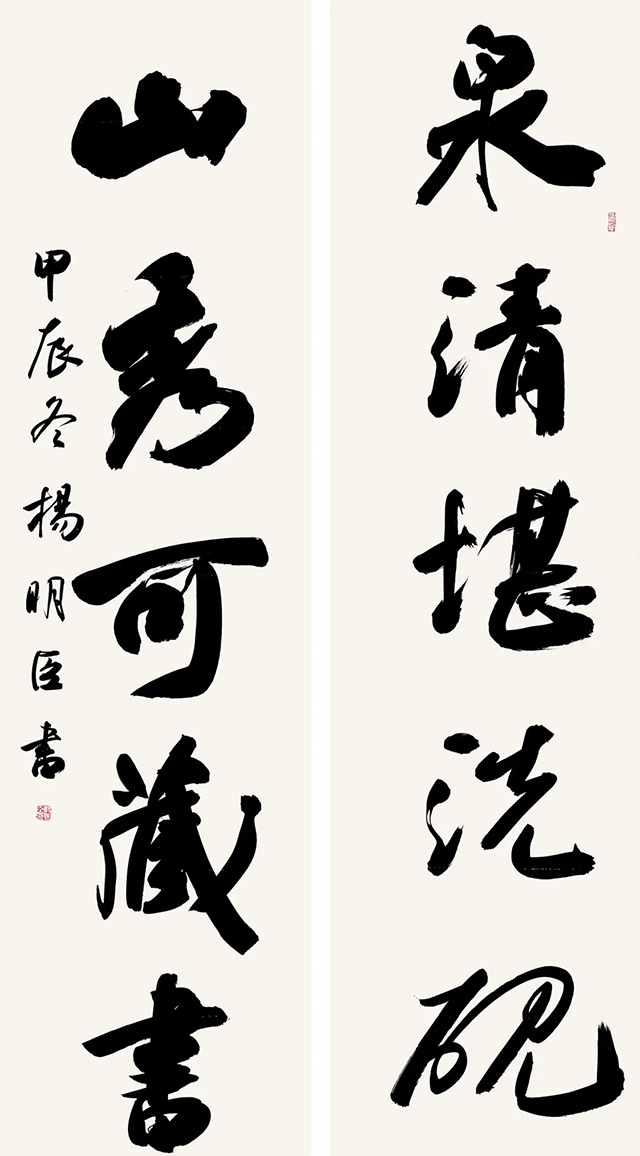 泉清堪洗硯
山秀可藏書
甲辰冬楊明臣書